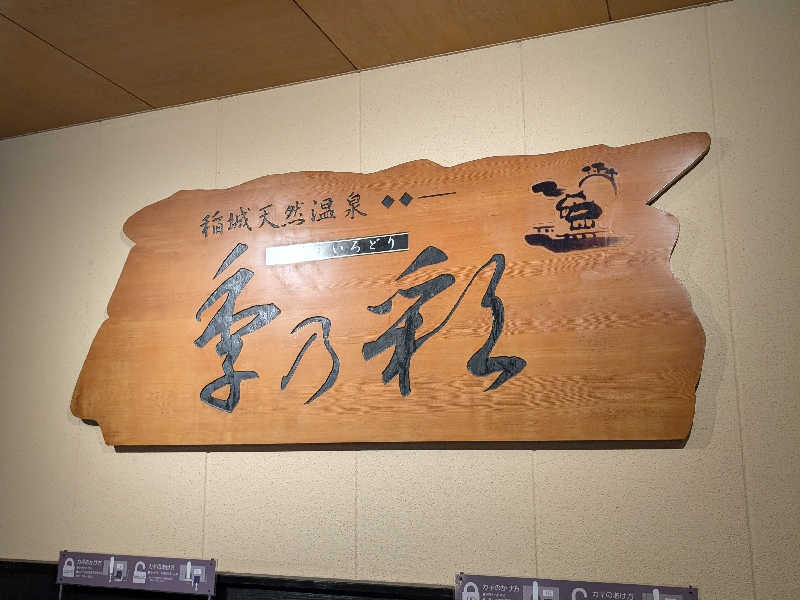 稲城天然温泉
いろどり
季乃彩
カギのかけ方
カギのあけ方
カギのかけ方
カギのあけ方